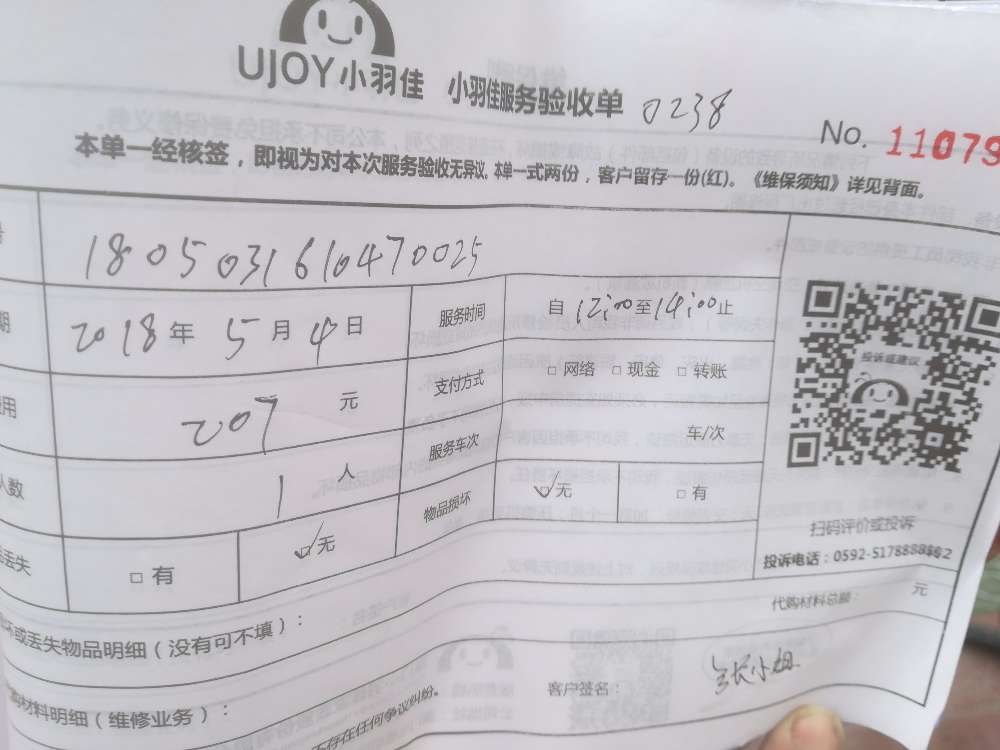 UJOY小羽佳 小羽佳服务验收单 0238
No. 11079
本单一经核签，即视为对本次服务验收无异议。本单一式两份，客户留存一份(红)。《维保须知》详见背面。
号 1805031610470025
期 2018年5月4日 服务时间 自12:00至14:00止
费用 207元 支付方式 □网络 □现金 □转账
人数 1人 服务车次 车/次
丢失 □有 ☑无 物品损坏 ☑无 □有
投诉或建议
扫码评价或投诉
投诉电话：0592-5178888
代购材料总额： 元
坏或丢失物品明细（没有可不填）：
材料明细（维修业务）：
客户签名： 张小姐
不存在任何争议纠纷。